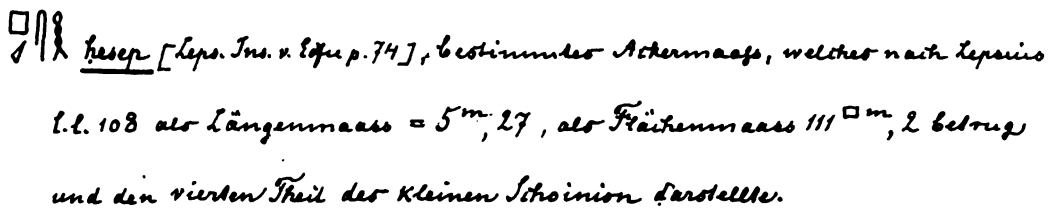 𓎛𓋴𓊪 ḥesep [Leps. Ins. v. Edfu p. 74], bestimmtes Ackermaass, welches nach Lepsius
l.l. 108 als Längenmaass = 5ᵐ,27, als Flächenmaass 111□ᵐ,2 betrug
und den vierten Theil des kleinen Schoinion darstellte.